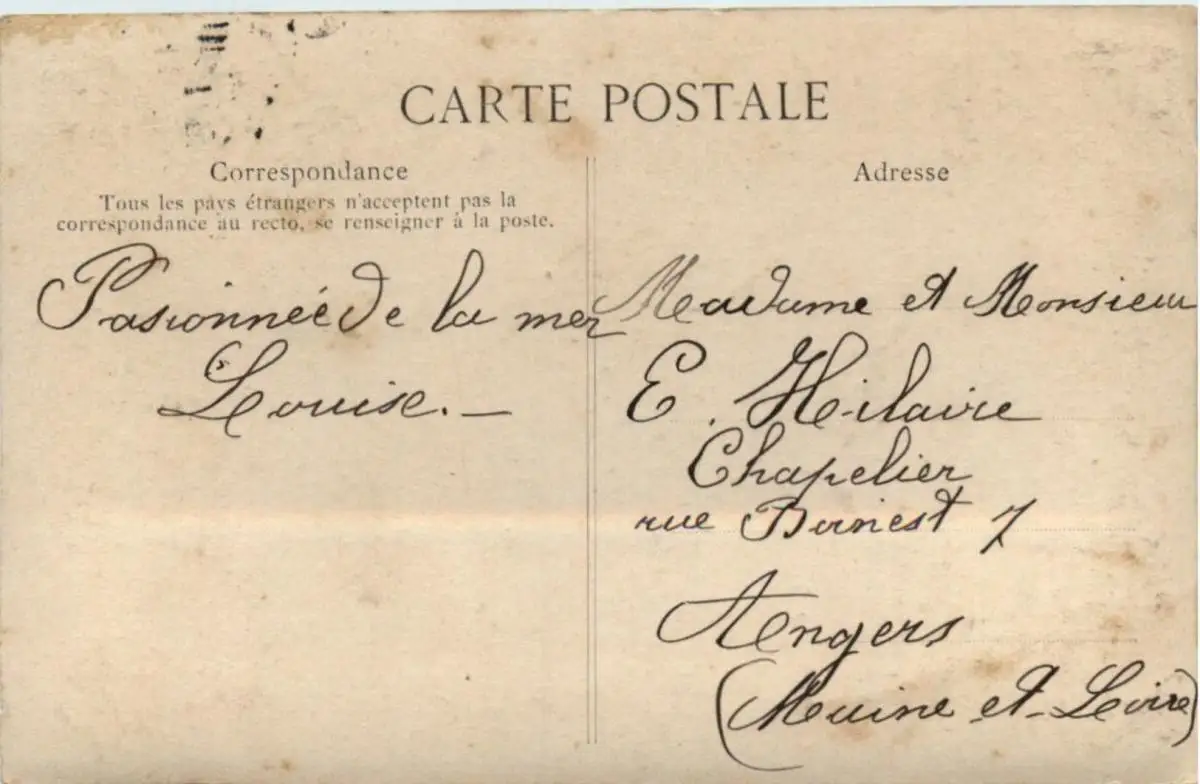 CARTE POSTALE
Correspondance
Tous les pays étrangers n'acceptent pas la
correspondance au recto, se renseigner à la poste.
Pasionnée de la mer
Louise.—
Adresse
Madame et Monsieur
E. Hilaire
Chapelier
rue 7
Angers
(Maine et-Loire)